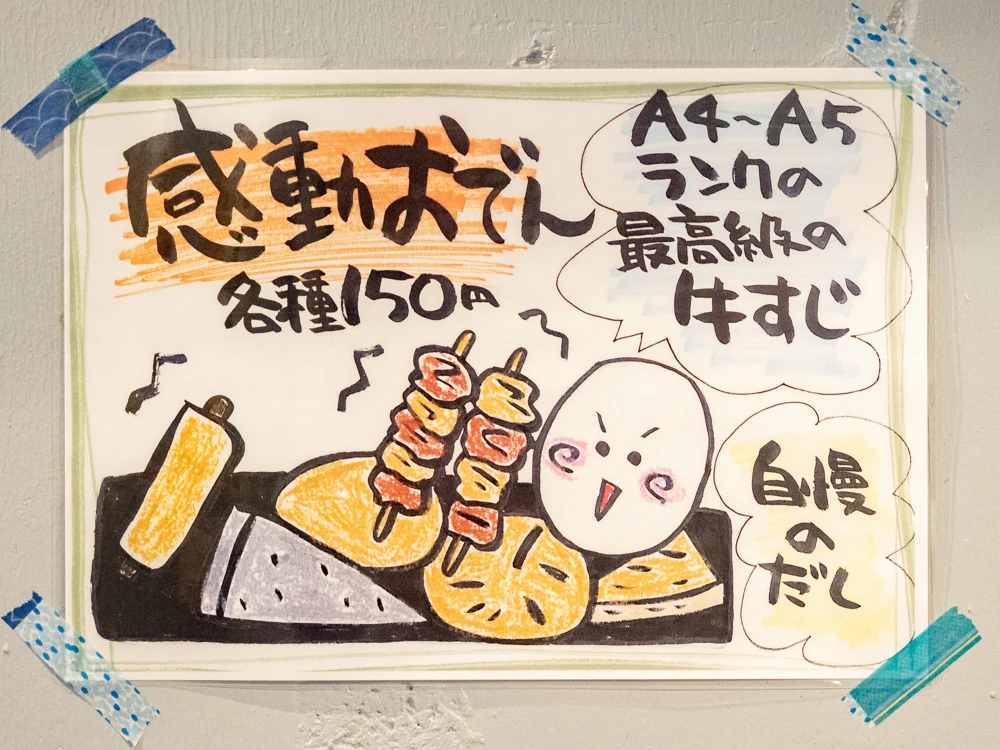 感動おでん
各種150円
A4~A5
ランクの
最高級の
牛すじ
自慢
の
だし